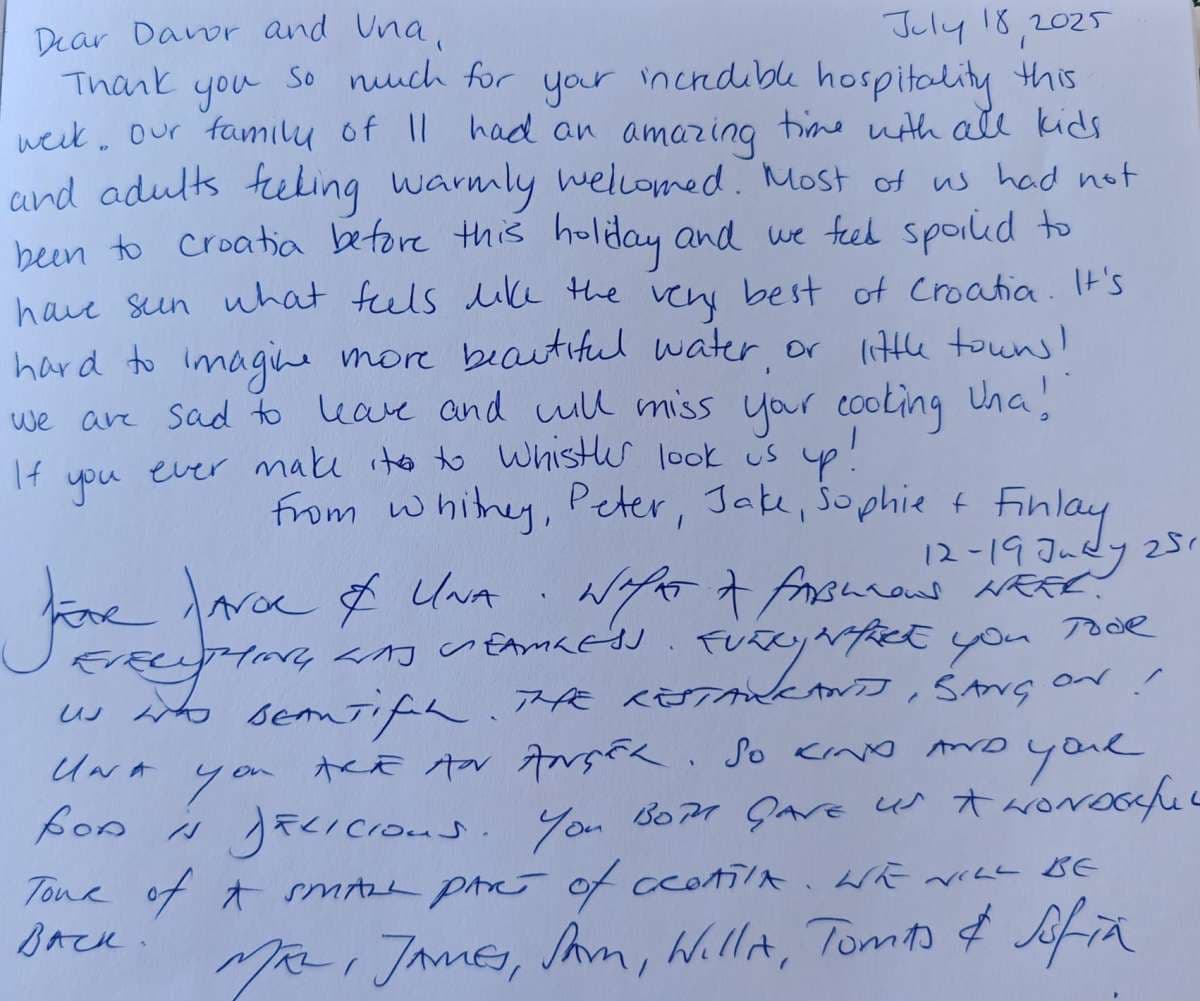 July 18, 2025
Dear Davor and Una,
Thank you so much for your incredible hospitality this
week. Our family of 11 had an amazing time with all kids
and adults feeling warmly welcomed. Most of us had not
been to Croatia before this holiday and we feel spoiled to
have seen what feels like the very best of Croatia. It's
hard to imagine more beautiful water, or little towns!
We are sad to leave and will miss your cooking Una!
If you ever make it to Whistler look us up!
From Whitney, Peter, Jake, Sophie + Finlay
12-19 July 25'
DEAR DAVOR & UNA. WHAT A FABULOUS WEEK.
EVERYTHING WAS SEAMLESS. EVERYWHERE YOU TOOK
US WAS BEAUTIFUL. THE RESTAURANTS, BANG ON!
UNA YOU ARE AN ANGEL. SO KIND AND YOUR
FOOD IS DELICIOUS. YOU BOTH GAVE US A WONDERFUL
TOUR OF A SMALL PART OF CROATIA. WE WILL BE
BACK.
MEL, JAMES, SAM, WILLA, TOMAS & SOFIA